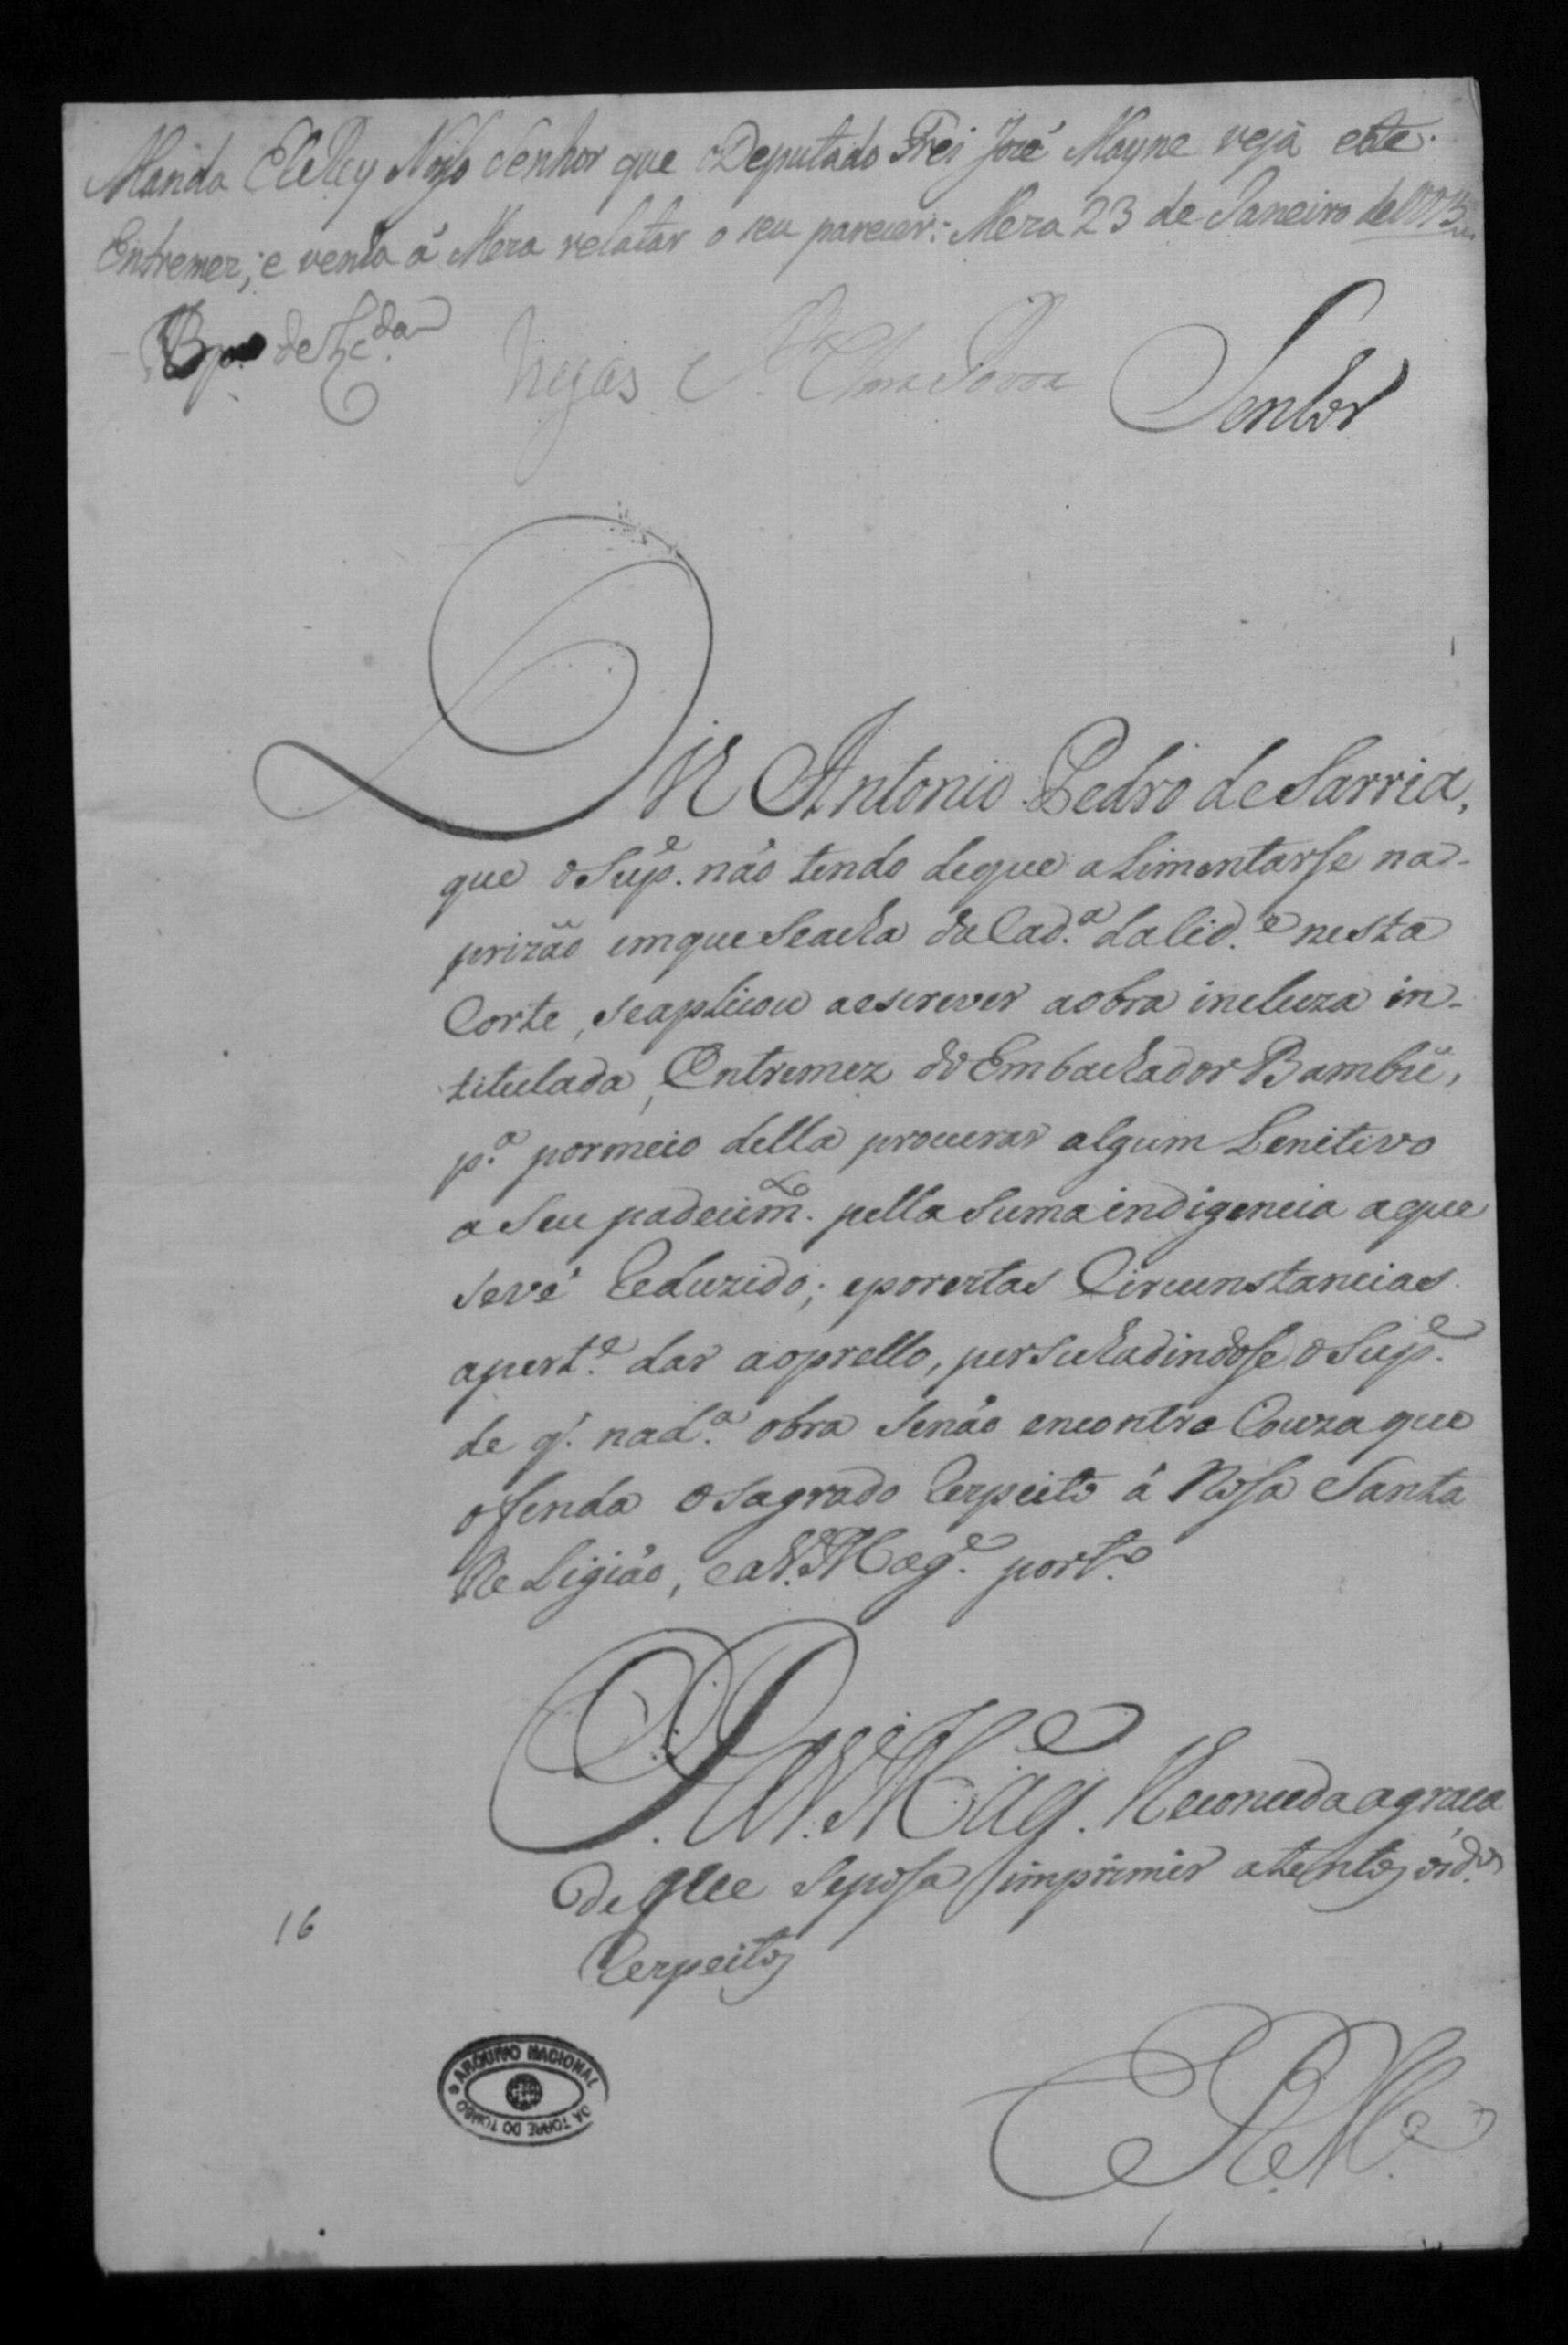 Manda ElRey Nosso Senhor que o Deputado Frei José Mayne veja este
Entremez; e venha á Meza relatar o seu parecer: Meza 23 de Janeiro de 177
Senhor
Diz Antonio Pedro de Sarria,
que o Sup.e não tendo de que alimentarse na
prizão em que se acha da Cad.a da Cid.e nesta
Corte, se aplicou a escrever a obra incluza in-
titulada, Entremez do Embachador Bambú,
p.a por meio della procurar algum Lenitivo
a seu padecim.to pella suma indigencia a que
se vé Reduzido; e por estas Circunstancias
a pert.e dar ao prello, persuhadindose o Sup.e
de q. na d.a obra se não encontra Couza que
ofenda o sagrado Respeito á Nosa Santa
Religião, e a V. Mag.e port.o
P. a V. Mag.e lhe conceda a graca
de que se posa imprimir a tentos os d.os
Respeitos
16
E. R. M.ce
ARQUIVO NACIONAL
DA TORRE DO TOMBO